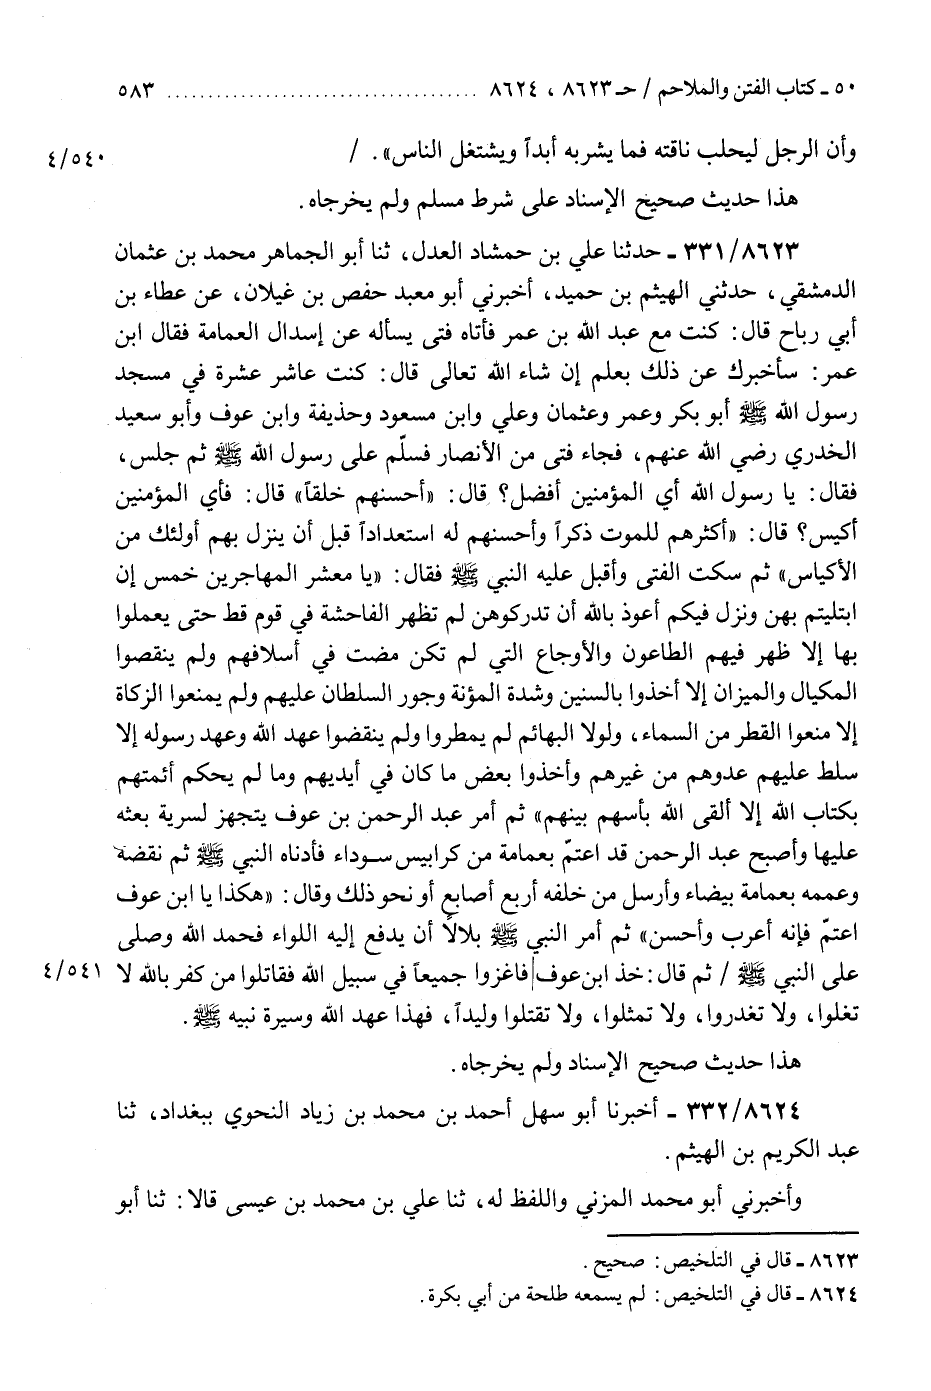 ٥٠ ـ كتاب الفتن والملاحم / حـ ٨٦٢٣ ، ٨٦٢٤ ..................................... ٥٨٣
وأن الرجل ليحلب ناقته فما يشربه أبداً ويشتغل الناس» . / ٤/٥٤٠
هذا حديث صحيح الإسناد على شرط مسلم ولم يخرجاه .
٣٣١/٨٦٢٣ ـ حدثنا علي بن حمشاد العدل ، ثنا أبو الجماهر محمد بن عثمان
الدمشقي ، حدثني الهيثم بن حميد ، أخبرني أبو معبد حفص بن غيلان ، عن عطاء بن
أبي رباح قال : كنت مع عبد الله بن عمر فأتاه فتى يسأله عن إسدال العمامة فقال ابن
عمر : سأخبرك عن ذلك بعلم إن شاء الله تعالى قال : كنت عاشر عشرة في مسجد
رسول الله ﷺ أبو بكر وعمر وعثمان وعلي وابن مسعود وحذيفة وابن عوف وأبو سعيد
الخدري رضي الله عنهم ، فجاء فتى من الأنصار فسلّم على رسول الله ﷺ ثم جلس ،
فقال : يا رسول الله أي المؤمنين أفضل ؟ قال : «أحسنهم خلقاً» قال : فأي المؤمنين
أكيس ؟ قال : «أكثرهم للموت ذكراً وأحسنهم له استعداداً قبل أن ينزل بهم أولئك من
الأكياس» ثم سكت الفتى وأقبل عليه النبي ﷺ فقال : «يا معشر المهاجرين خمس إن
ابتليتم بهن ونزل فيكم أعوذ بالله أن تدركوهن لم تظهر الفاحشة في قوم قط حتى يعملوا
بها إلا ظهر فيهم الطاعون والأوجاع التي لم تكن مضت في أسلافهم ولم ينقصوا
المكيال والميزان إلا أخذوا بالسنين وشدة المؤنة وجور السلطان عليهم ولم يمنعوا الزكاة
إلا منعوا القطر من السماء ، ولولا البهائم لم يمطروا ولم ينقضوا عهد الله وعهد رسوله إلا
سلط عليهم عدوهم من غيرهم وأخذوا بعض ما كان في أيديهم وما لم يحكم أئمتهم
بكتاب الله إلا ألقى الله بأسهم بينهم» ثم أمر عبد الرحمن بن عوف يتجهز لسرية بعثه
عليها وأصبح عبد الرحمن قد اعتمّ بعمامة من كرابيس سوداء فأدناه النبي ﷺ ثم نقضه
وعممه بعمامة بيضاء وأرسل من خلفه أربع أصابع أو نحو ذلك وقال : «هكذا يا ابن عوف
اعتمّ فإنه أعرب وأحسن» ثم أمر النبي ﷺ بلالاً أن يدفع إليه اللواء فحمد الله وصلى
على النبي ﷺ / ثم قال : خذ ابن عوف فاغزوا جميعاً في سبيل الله فقاتلوا من كفر بالله لا ٤/٥٤١
تغلوا ، ولا تغدروا ، ولا تمثلوا ، ولا تقتلوا وليداً ، فهذا عهد الله وسيرة نبيه ﷺ .
هذا حديث صحيح الإسناد ولم يخرجاه .
٣٣٢/٨٦٢٤ ـ أخبرنا أبو سهل أحمد بن محمد بن زياد النحوي ببغداد ، ثنا
عبد الكريم بن الهيثم .
وأخبرني أبو محمد المزني واللفظ له ، ثنا علي بن محمد بن عيسى قالا : ثنا أبو
٨٦٢٣ ـ قال في التلخيص : صحيح .
٨٦٢٤ ـ قال في التلخيص : لم يسمعه طلحة من أبي بكرة .